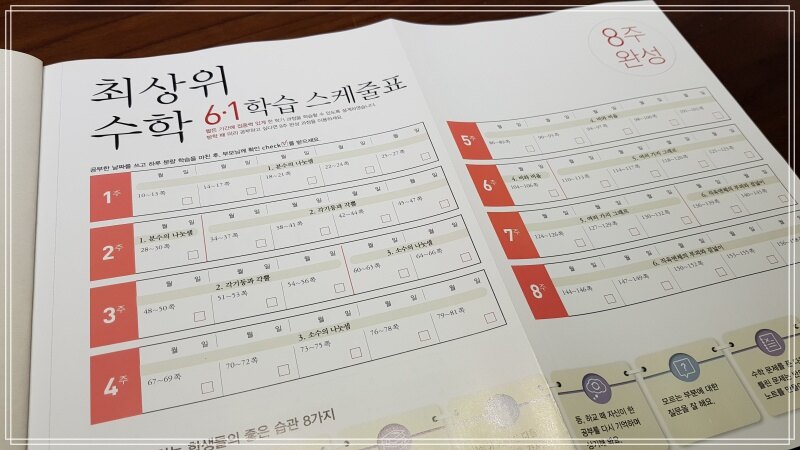 최상위
수학 6·1 학습 스케줄표
짧은 기간에 집중력 있게 한 학기 과정을 학습할 수 있도록 설계하였습니다.
방학 때 미리 공부하고 싶다면 8주 완성 과정을 이용하세요.
8주
완성
공부한 날짜를 쓰고 하루 분량 학습을 마친 후, 부모님께 확인 check ✓를 받으세요.
1주
월 일 월 일 월 일 월 일 월 일
1. 분수의 나눗셈
10~13쪽 14~17쪽 18~21쪽 22~24쪽 25~27쪽
2주
월 일 월 일 월 일 월 일 월 일
1. 분수의 나눗셈 2. 각기둥과 각뿔
28~30쪽 34~37쪽 38~41쪽 42~44쪽 45~47쪽
3주
월 일 월 일 월 일 월 일 월 일
2. 각기둥과 각뿔 3. 소수의 나눗셈
48~50쪽 51~53쪽 54~56쪽 60~63쪽 64~66쪽
4주
월 일 월 일 월 일 월 일 월 일
3. 소수의 나눗셈
67~69쪽 70~72쪽 73~75쪽 76~78쪽 79~81쪽
5주
월 일 월 일 월 일 월 일 월 일
4. 비와 비율
90~93쪽 94~97쪽 98~100쪽 101~103쪽
6주
월 일 월 일 월 일 월 일 월 일
4. 비와 비율 5. 여러 가지 그래프
104~106쪽 110~113쪽 114~117쪽 118~120쪽 121~123쪽
7주
월 일 월 일 월 일 월 일 월 일
5. 여러 가지 그래프 6. 직육면체의 부피와 겉넓이
124~126쪽 127~129쪽 130~132쪽 136~139쪽 140~143쪽
8주
월 일 월 일 월 일 월 일
6. 직육면체의 부피와 겉넓이
144~146쪽 147~149쪽 150~152쪽 153~155쪽 156~
학생들의 좋은 습관 8가지
등, 하교 때 자신이 한
공부를 다시 기억하며
모르는 부분에 대한
질문을 잘 해요.
수학 문제를
틀린 문제는
노트를